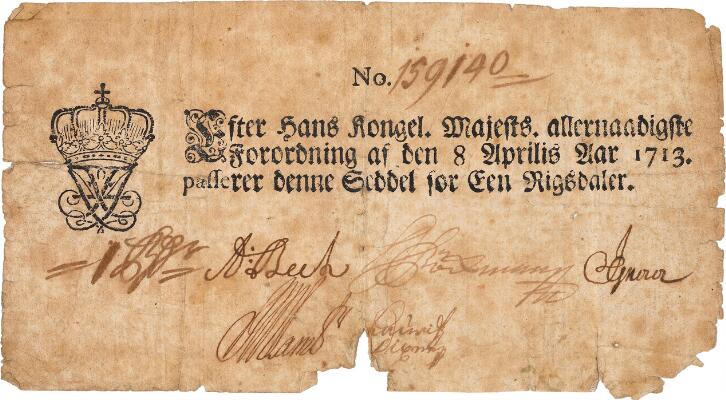 No. 159140
Efter Hans Kongel. Majests. allernaadigste
Forordning af den 8 Aprilis Aar 1713.
passerer denne Seddel for Een Rigsdaler.
A: Bech